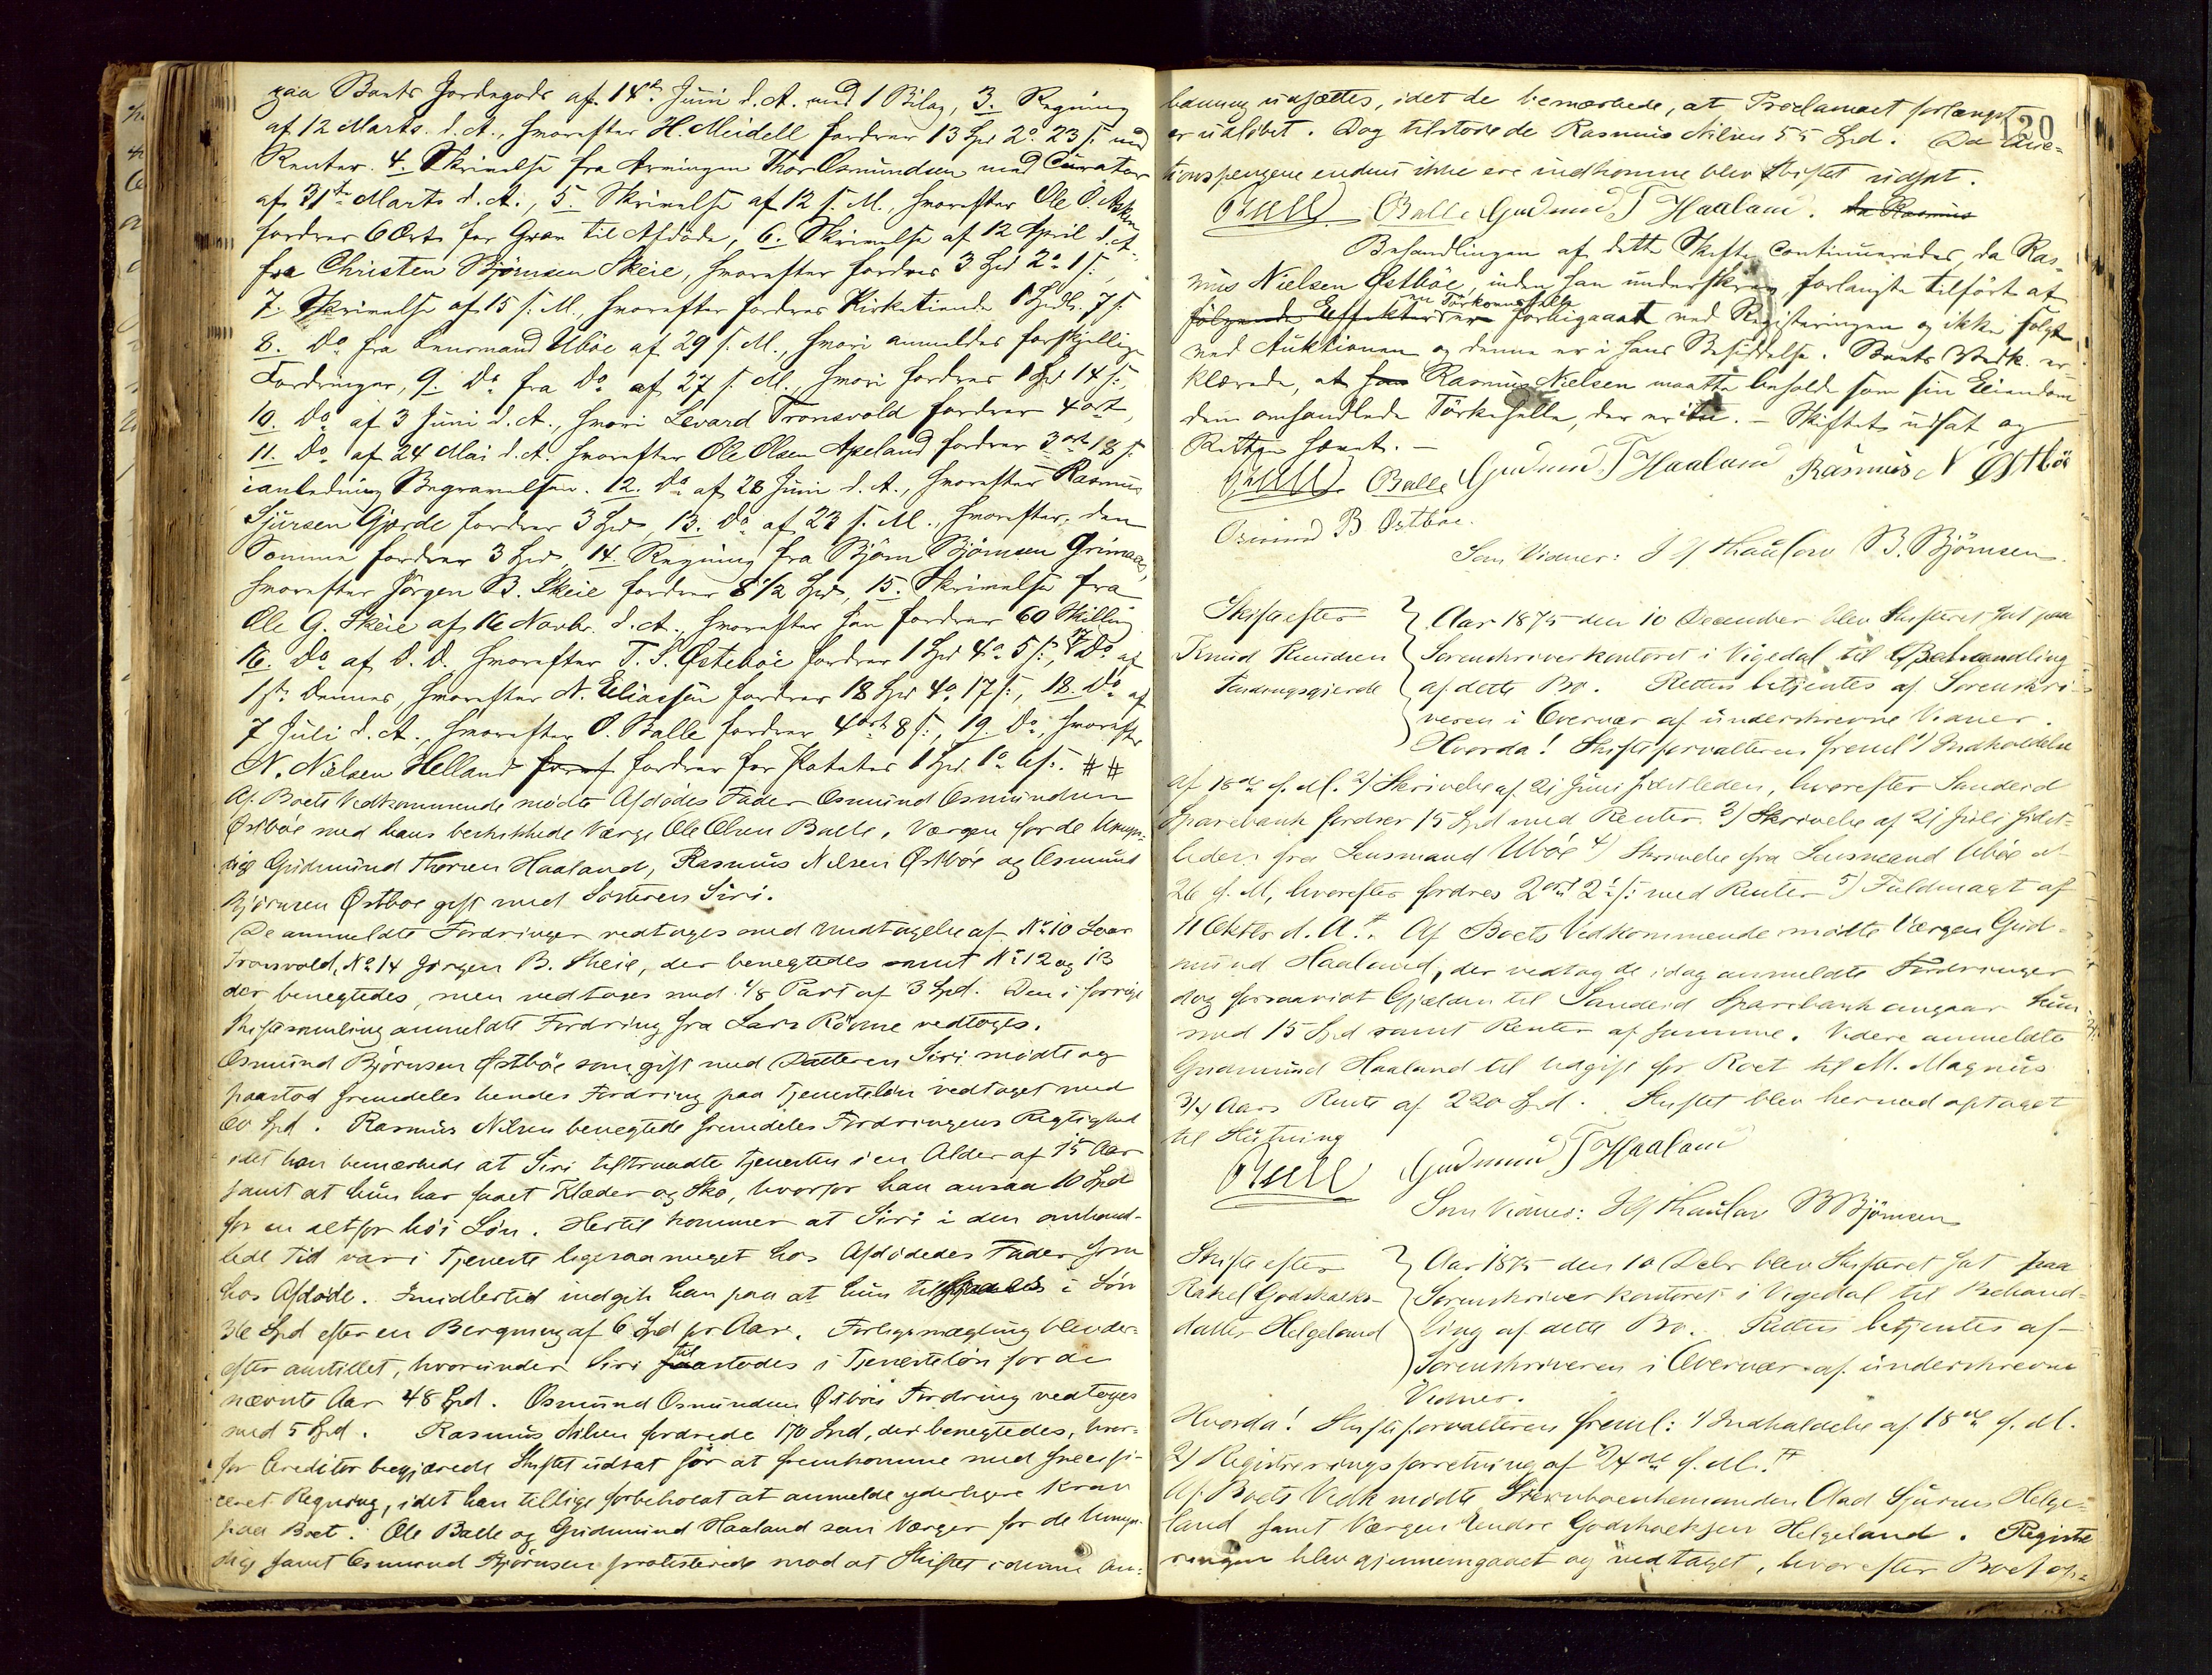 paa Boets Jordegods af 14de Juni d. A. med 1 Bilag, 3. Regning
af 12 Marts d. A., hvorefter H. Meidell fordrer 13 Spd 2o 23 s. med
Renter. 4. Skrivelse fra Arvingen Thor Osmundsen med Curator
af 31te Marts d. A., 5. Skrivelse af 12 s. M., hvorefter Ole O.
fordrer 6 Ort for Grav til Afdøde, 6. Skrivelse af 12 April d. A.
fra Christen Bjørnsen Skeie, hvorefter fordres 3 Spd 2o 1 s.,
7. Skrivelse af 15 s. M., hvorefter fordres Kirketiende 1 Spdlr. 7 s.
8. Do fra Lensmand Ubøe af 29 s. M., hvori anmeldes forskjellige
Fordringer, 9. Do fra Do af 27 s. M., hvori fordres 1 Spd 14 s.,
10. Do af 3 Juni d. A., hvori Levard Tronsvold fordrer 4 ort,
11. Do af 24 Mai d. A. hvorefter Ole Olsen Apeland fordrer 3 ort 18 s.
i anledning Begravelsen. 12. Do af 28 Juni d. A., hvorefter Rasmus
Sjursen Gjerde fordrer 3 Spd, 13. Do af 23 s. M., hvorefter den
Samme fordrer 3 Spd, 14. Regning fra Bjørn Bjørnsen Grimaas,
hvorefter Jørgen B. Skeie fordrer 8 1/2 Spd, 15. Skrivelse fra
Ole G. Skeie af 16 Novbr. d. A., hvorefter han fordrer 60 Skilling
16. Do af D. D. hvorefter T. S. Østebøe fordrer 1 Spd 4o 5 s., 17 Do af
1ste dennes, hvorefter N. Eliassen fordrer 18 Spd 4o 17 s., 18. Do af
7 Juli d. A., hvorefter O. Balle fordrer 4 ort 8 s., 19. Do, hvorefter
N. Nielsen Helland fordrer for Poteter 1 Spd. 1o 6 s. ##
Af Boets Vedkommende mødte Afdødes Fader Osmund Osmundsen
Østbøe med hans beskikkede Værge Ole Olsen Balle, Værgen for de Umyn-
dige Gudmund Thorsen Haaland, Rasmus Nilsen Østbøe og Osmund
Bjørnsen Østbøe gift med Søsteren Siri.
De anmeldte Fordringer vedtoges med Undtagelse af No 10 Levar
Tronsvold, No 14 Jørgen B. Skeie, der benegtedes samt No 12 og 13
der benegtedes, men vedtoges med 1/8 Part af 3 Spd. Den i forrige
Skiftesamling anmeldte Fordring fra Lars Rønne vedtoges.
Osmund Bjørnsen Østbøe som gift med Datteren Siri mødte og
paastod fremdeles hendes Fordring paa Tjenesteløn vedtaget med
60 Spd. Rasmus Nilsen benegtede fremdeles Fordringens Rigtighed
idet han bemærkede at Siri tiltraadte Tjenesten i en Alder af 15 Aar
samt at hun har faaet Klæder og Sko, hvorfor han ansaa 10 Spd
for en altfor høi Løn. Hertil kommer at Siri i den omhand-
lede Tid var i Tjeneste ligesaameget hos Afdødes Fader som
hos Afdøde. Imidlertid indgik han paa at hun i Løn
36 Spd efter en Beregning af 6 Spd pr Aar. Forligsmægling blev der-
efter anstillet, hvorunder Siri tilstodes i Tjenesteløn for de
nævnte Aar 48 Spd. Osmund Osmundsen Østbøes Fordring vedtoges
med 5 Spd. Rasmus Nilsen fordrede 170 Spd, der benegtedes, hvor-
for Creditor begjærede Skiftet udsat for at fremkomme med specifi-
ceret Regning, idet han tillige forbeholdt at anmelde yderligere Krav
paa Boet. Ole Balle og Gudmund Haaland som Værger for de Umyn-
dige samt Osmund Bjørnsen protesterede mod at Skiftet i denne An-
120
ledning udsættes, idet de bemærkede, at Proclamaet forlængst
er udløbet. Dog tilstode de Rasmus Nilsen 55 Spd. Da Auc-
tionspengene endnu ikke ere indkomne blev Skiftet udsat.
Balle Gudmund T Haaland.
Behandlingen af dette Skifte continueredes, da Ras-
mus Nielsen Østbøe, inden han underskrev forlangte tilført at
følgende Effekter er forbigaaet ved Registeringen og ikke solgt
ved Auktionen og denne er i hans Besiddelse. Boets Vedk. er-
klærede, at Rasmus Nielsen maatte beholde som sin Eiendom
den omhandlede Tørkehelle, der er itu. – Skiftet udsat og
Retten hævet. –
Balle Gudmund T Haaland Rasmus N Østbø
Osmund B Østbøe.
Som Vidner: Thaulow B. Bjørnsen.
Skifte efter
Knud Knudsen
Tendragsgjerde
Aar 1875 den 10 December blev Skifteret sat paa
Sorenskriverkontoret i Vigedal til Behandling
af dette Bo. Retten betjentes af Sorenskri-
veren i Overvær af underskrevne Vidner.
Hvorda! Skifteforvalteren freml. 1) Indkaldelse
af 18de f. M. 2) Skrivelse af 21 Juni sidstleden, hvorefter Sandeid
Sparebank fordrer 15 Spd med Renter. 3) Skrivelse af 21 Juli sidst-
leden fra Lensmand Ubøe 4) Skrivelse fra Lensmand Ubøe af
26 f. M, hvorefter fordres 2 ort 21 s. med Renter 5) Fuldmagt af
11 Oktbr d. A. Af Boets Vedkommende mødte Værgen Gud-
mund Haaland, der vedtog de idag anmeldte Fordringer
dog forsaavidt Gjælden til Sandeid Sparebank angaar kun
med 15 Spd samt Renter af samme. Videre anmeldte
Gudmund Haaland til Udgift for Boet til M. Magnus
3/4 Aars Rente af 220 Spd. Skiftet blev hermed optaget
til Slutning
Gudmund T Haaland
Som Vidner: Thaulow B Bjørnsen
Skifte efter
Rakel Godskalks-
datter Helgeland
Aar 1875 den 10 Debr blev Skifteret sat paa
Sorenskriverkontoret i Vigedal til Behand-
ling af dette Bo. Retten betjentes af
Sorenskriveren i Overvær af underskrevne
Vidner.
Hvorda! Skifteforvalteren freml: 1) Indkaldelse af 18de f. M.
2) Registreringsforretning af 24de f. M.
Af Boets Vedk mødte Stervboenkemanden Aad Sjursen Helge-
land samt Værgen Endre Godskalksen Helgeland. Registe-
ringen blev gjennemgaaet og vedtaget, hvorefter Boet op-